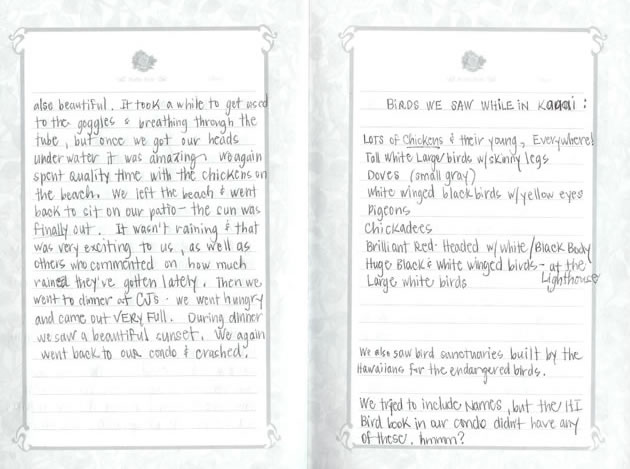 also beautiful. It took a while to get used
to the goggles & breathing through the
tube, but once we got our heads
under water it was amazing. We again
spent quality time with the chickens on
the beach. We left the beach & went
back to sit on our patio - the sun was
finally out. It wasn't raining & that
was very exciting to us, as well as
others who commented on how much
rain they've gotten lately. Then we
went to dinner at CJs. We went hungry
and came out VERY FULL. During dinner
we saw a beautiful sunset. We again
went back to our condo & crashed.
BIRDS WE SAW WHILE IN Kauai:
LOTS of Chickens & their young, Everywhere!
Tall White Large birds w/skinny legs
Doves (small gray)
White winged black birds w/yellow eyes
Pigeons
Chickadees
Brilliant Red-Headed w/white/Black Body
Huge Black & White winged birds - at the
Lighthouse
Large white birds
We also saw bird sanctuaries built by the
Hawaiians for the endangered birds.
We tried to include Names, but the HI
Bird book in our condo didn't have any
of these. hmmm?